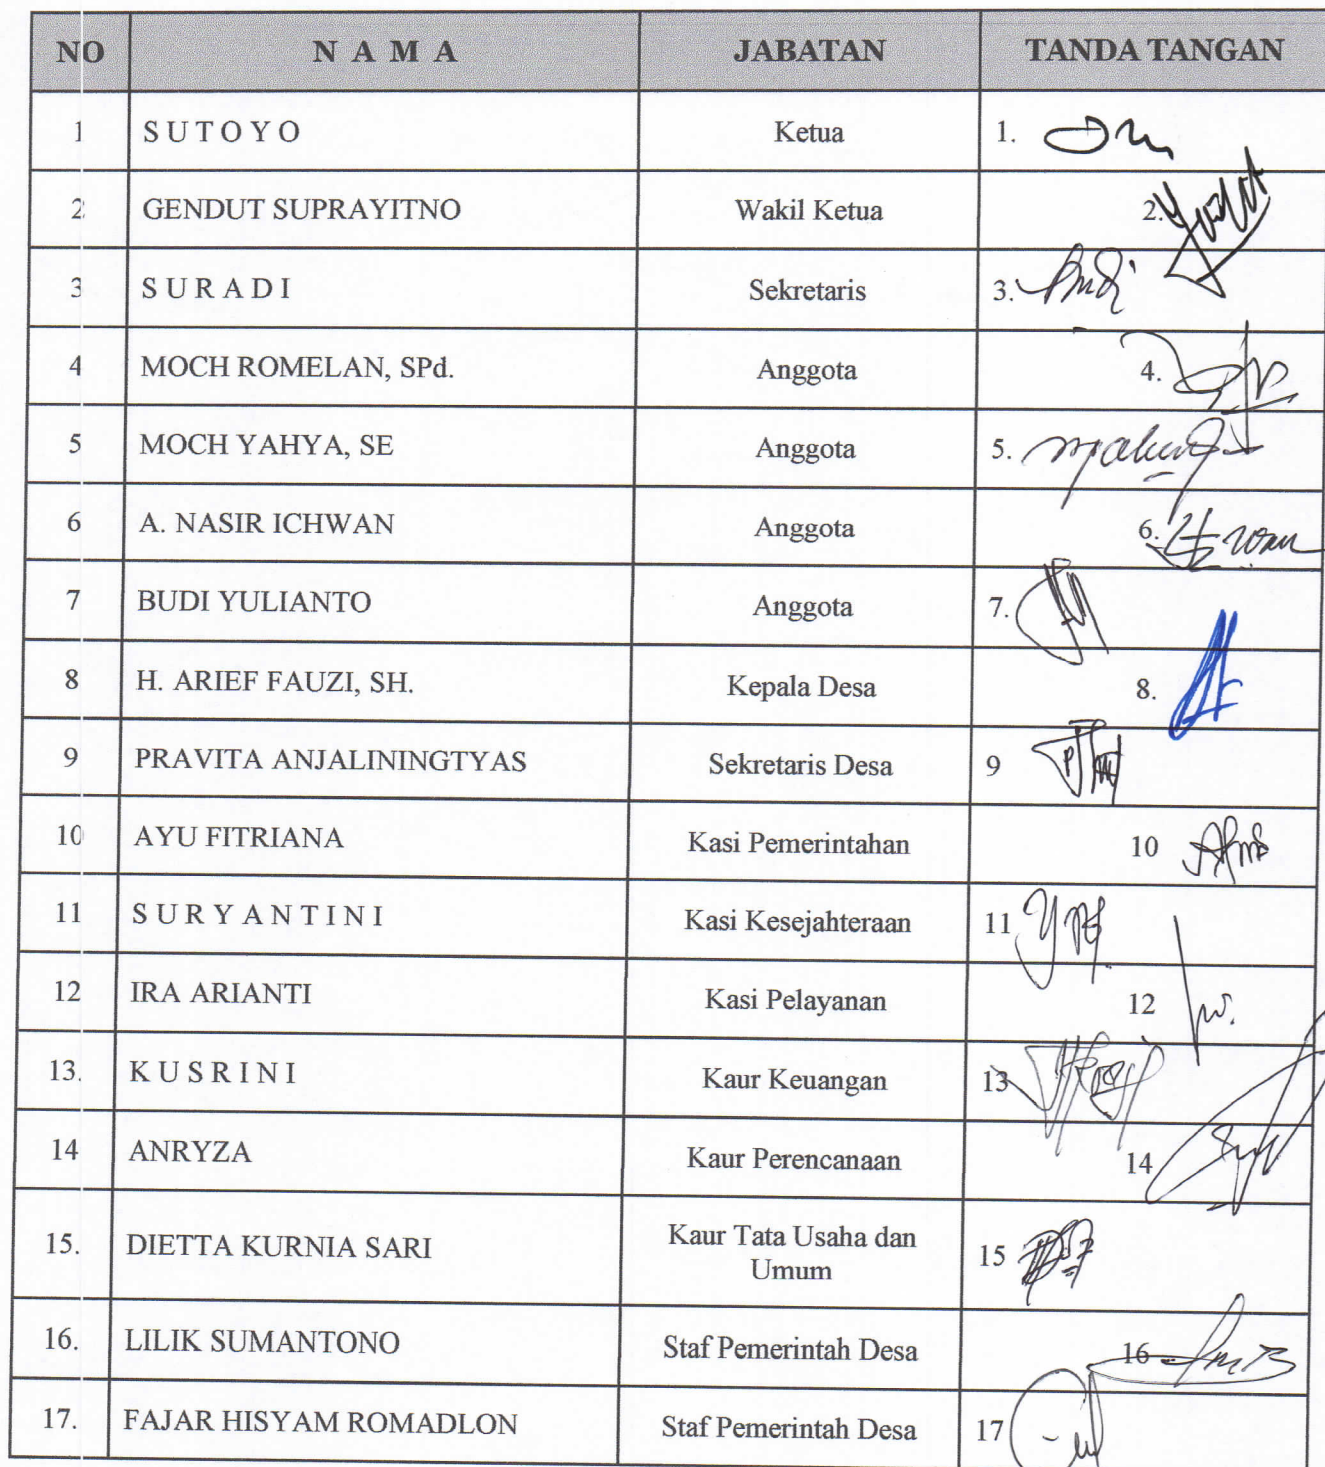 NO N A M A JABATAN TANDA TANGAN
1 S U T O Y O Ketua 1.
2 GENDUT SUPRAYITNO Wakil Ketua 2.
3 S U R A D I Sekretaris 3.
4 MOCH ROMELAN, SPd. Anggota 4.
5 MOCH YAHYA, SE Anggota 5.
6 A. NASIR ICHWAN Anggota 6.
7 BUDI YULIANTO Anggota 7.
8 H. ARIEF FAUZI, SH. Kepala Desa 8.
9 PRAVITA ANJALININGTYAS Sekretaris Desa 9
10 AYU FITRIANA Kasi Pemerintahan 10
11 S U R Y A N T I N I Kasi Kesejahteraan 11
12 IRA ARIANTI Kasi Pelayanan 12
13. K U S R I N I Kaur Keuangan 13
14 ANRYZA Kaur Perencanaan 14
15. DIETTA KURNIA SARI Kaur Tata Usaha dan
Umum 15
16. LILIK SUMANTONO Staf Pemerintah Desa 16
17. FAJAR HISYAM ROMADLON Staf Pemerintah Desa 17